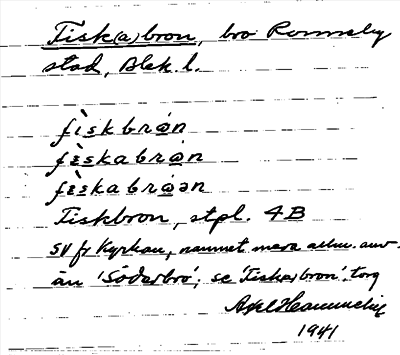 Fisk(a)bron, bro Ronneby
stad, Blek. l.
fìskbrọn
fèskabrọn
fèskabrọən
Fiskbron, stpl. 4B
SV fr kyrkan, namnet mera allm. anv.
än 'Söderbro'; se 'Fisk(a)bron', torg
Axel
1941